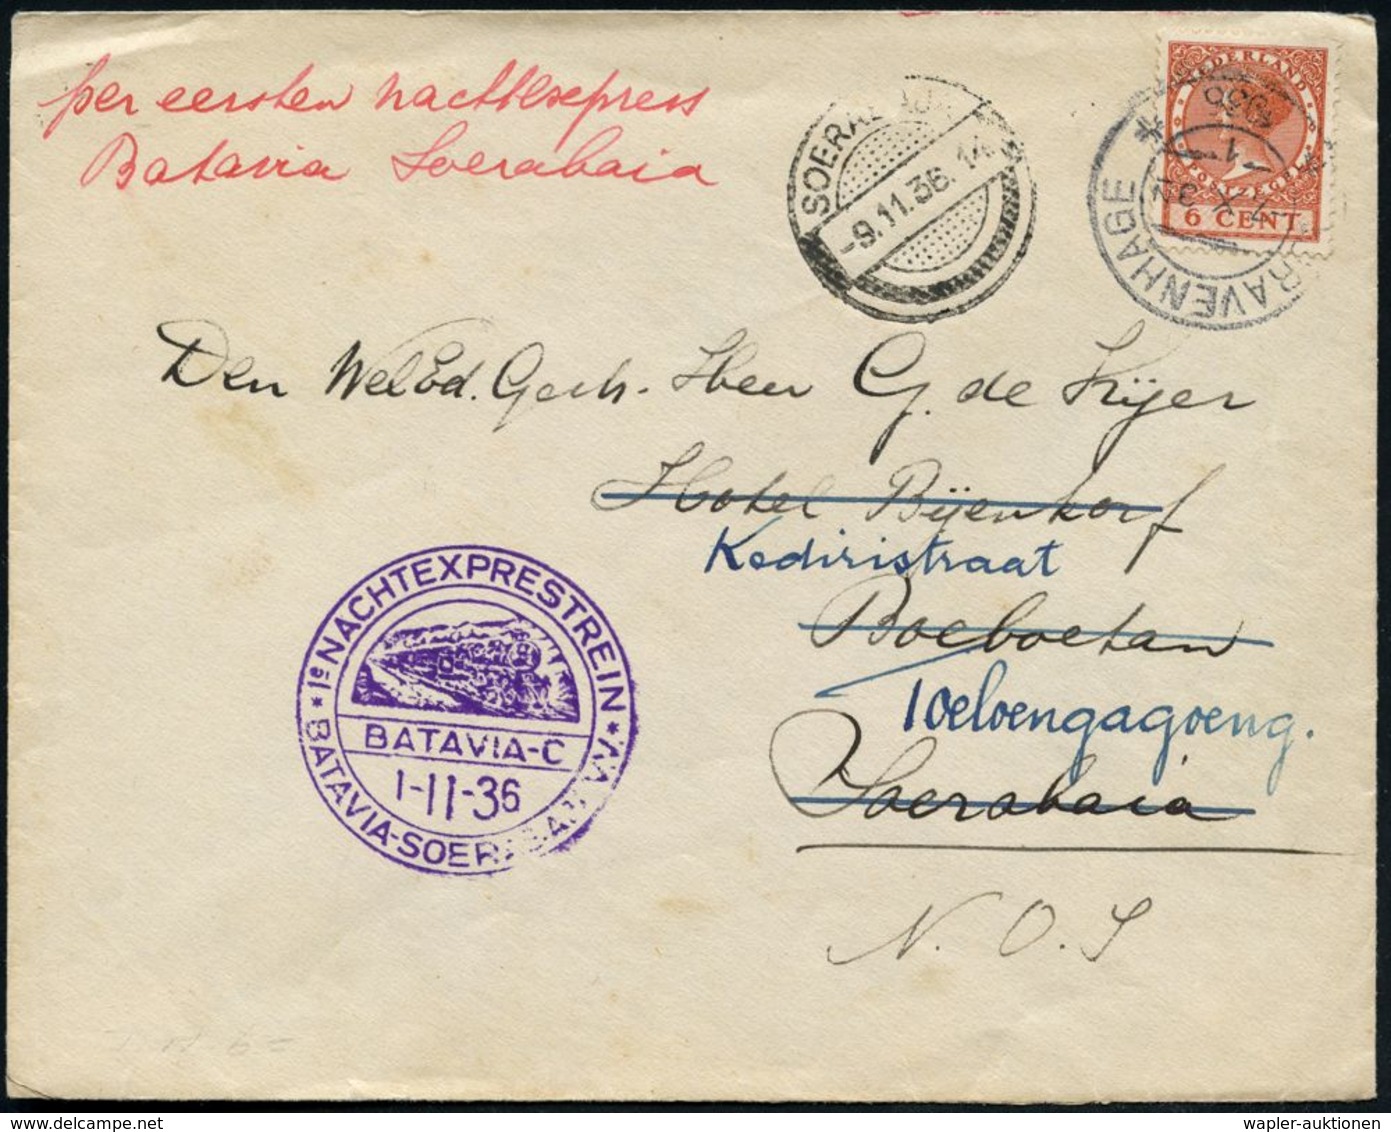 per eersten nachtexpress
Batavia Soerabaia
SOERABAJA
-9.11.36.14
NEDERLAND
POSTZEGEL
6 CENT
'S GRAVENHAGE
1936
Den WelEd. Gestr. Heer G. de Kijer
Hotel Bijenkorf
Kediristraat
Boeboetan
Toeloengagoeng.
Soerabaia
N. O. I
* 1e NACHTEXPRESTREIN *
BATAVIA-C
1-11-36
BATAVIA-SOERABAIA V.V.
wapler-auktionen